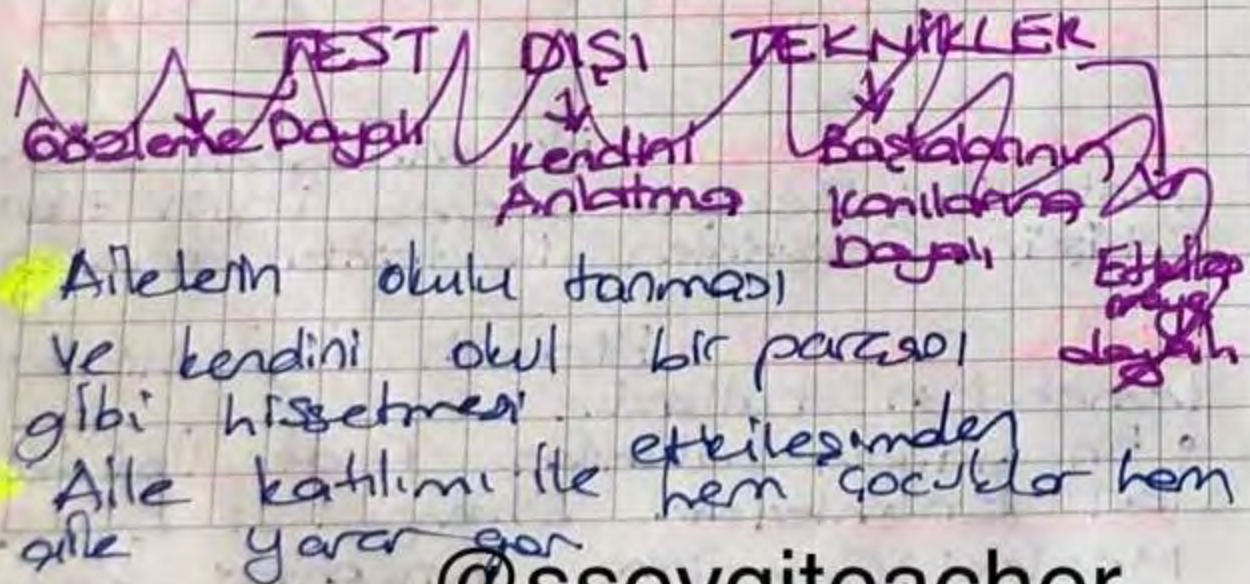 TEST DIŞI TEKNİKLER
Gözleme Dayalı
Kendini
Anlatma
Başkalarının
Kanılarına
Dayalı
Etkileş
meye
dayalı
Ailelerin okulu tanıması
ve kendini okul bir parçası
gibi hissetmesi
Aile katılımı ile etkileşimden hem çocuklar hem
aile yarar gör
@ssevgiteacher